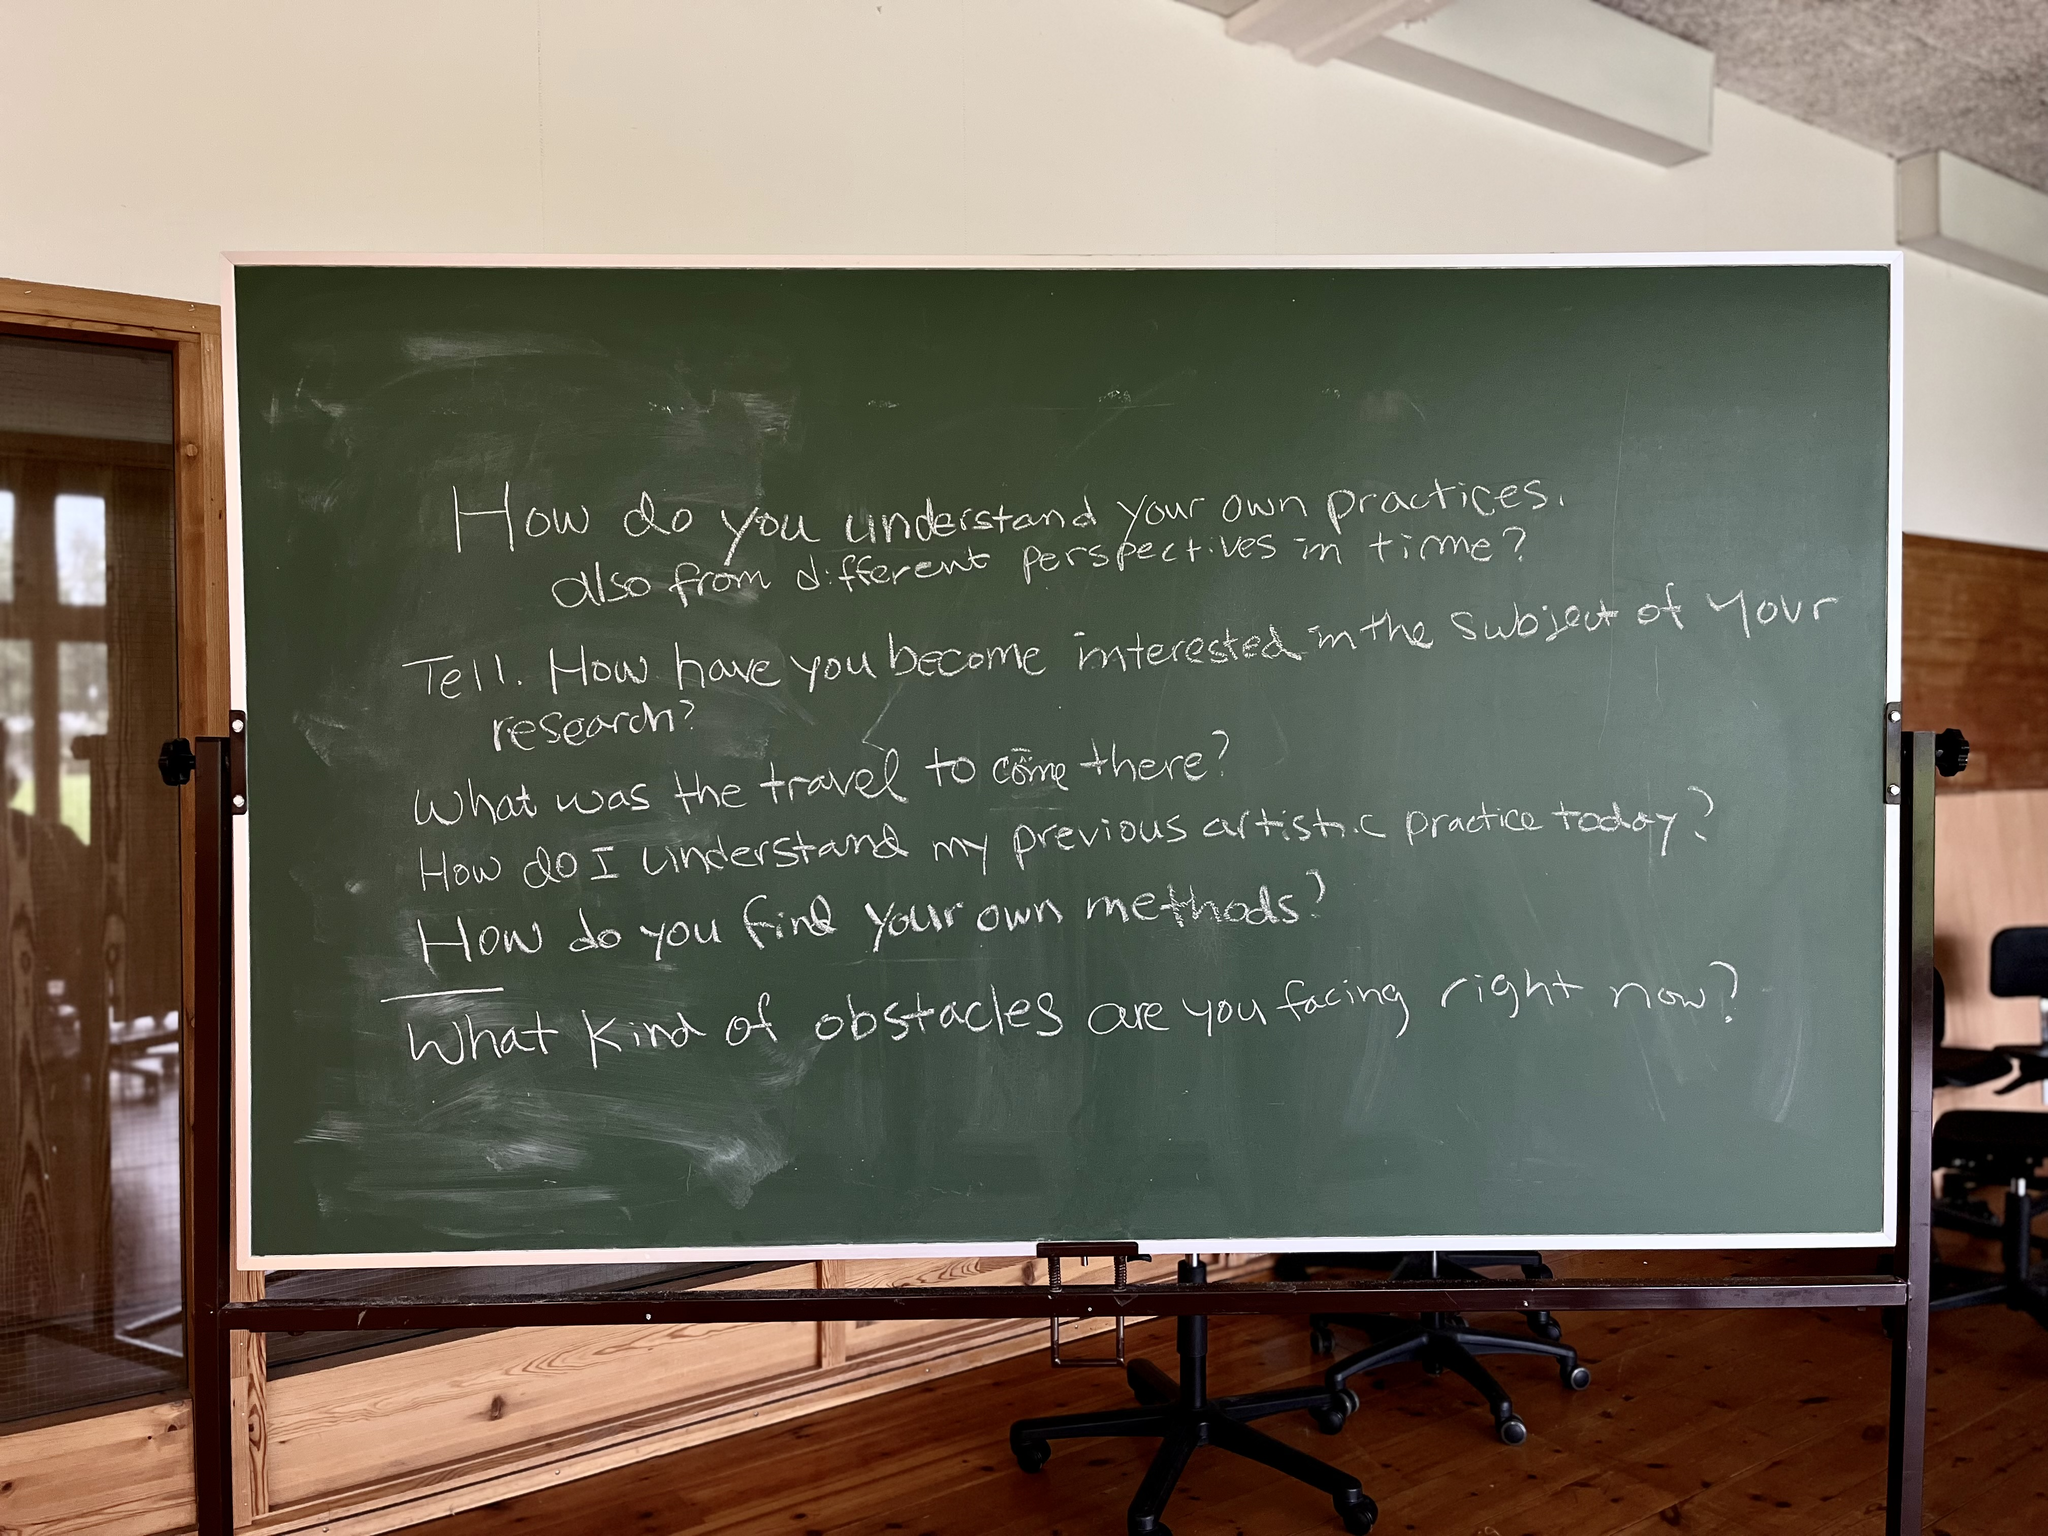 How do you understand your own practices.
also from different perspectives in time?
Tell. How have you become interested in the subject of your
research?
What was the travel to come there?
How do I understand my previous artistic practice today?
How do you find your own methods?
What kind of obstacles are you facing right now?